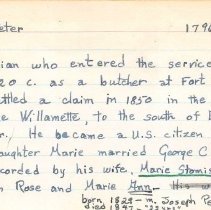 eter 179
ian who entered the service
20 c. as a butcher at Fort
ttled a claim in 1850 in the
he Willamette, to the south of
r.) He became a U.S. citizen
ughter Marie married George C
corded by his wife, Marie
n Rose and Marie Ann. His w
born 1829 - m. Joseph Pe
died 1897 -